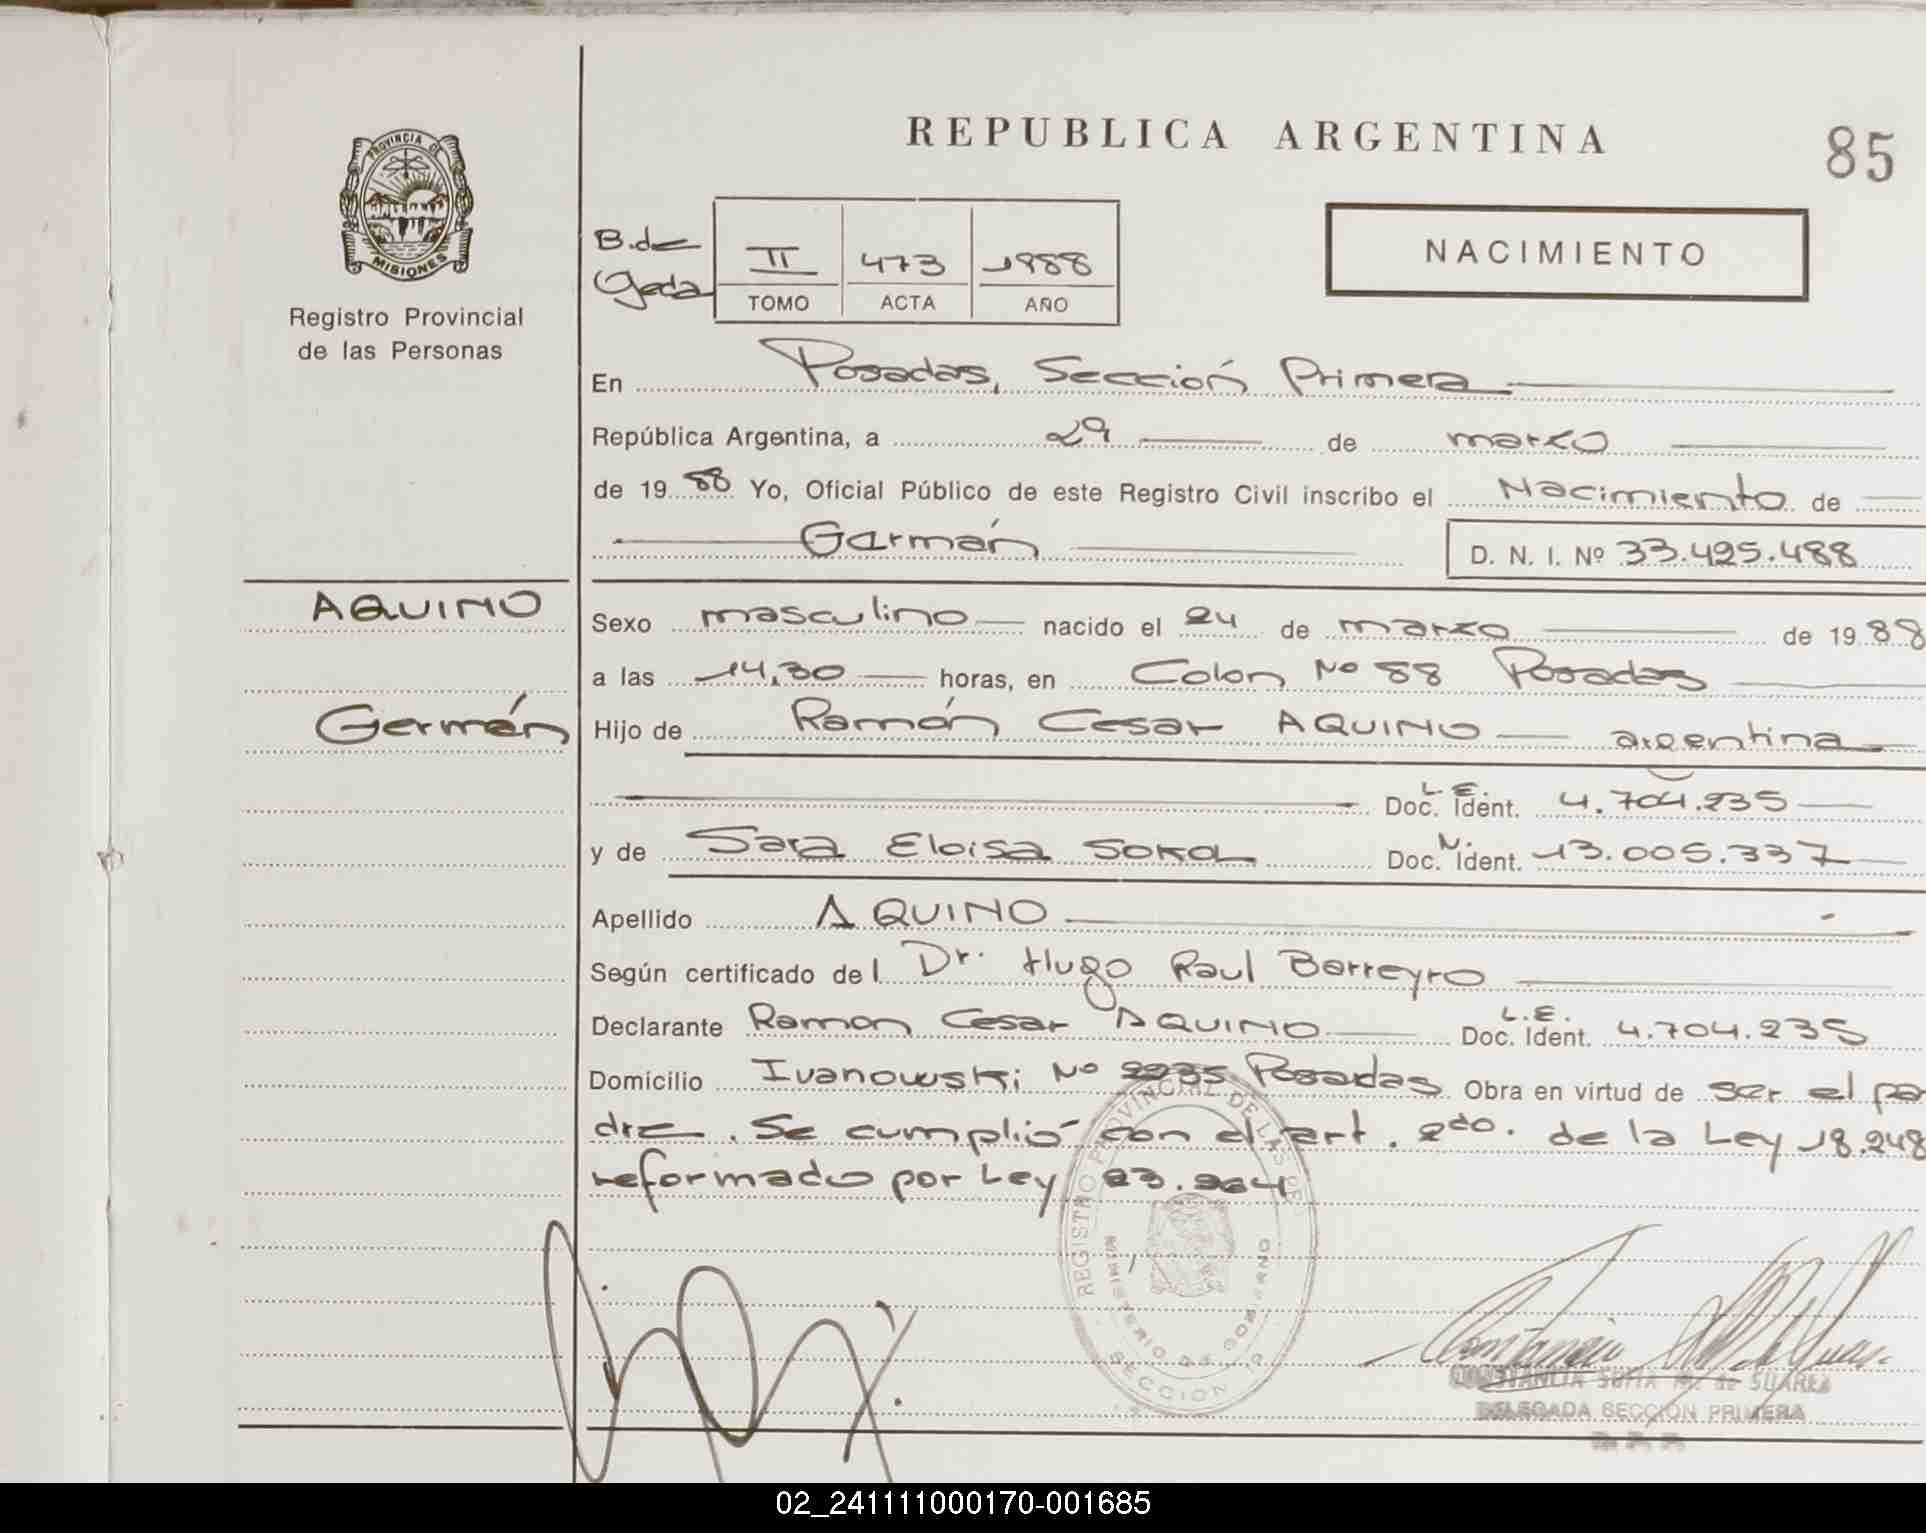 PROVINCIA DE
MISIONES
Registro Provincial
de las Personas
REPUBLICA ARGENTINA
85
B.de
II 473 1988
TOMO ACTA AÑO
NACIMIENTO
En Posadas, Sección Primera
República Argentina, a 29 de marzo
de 1988 Yo, Oficial Público de este Registro Civil inscribo el Nacimiento de
Germán D. N. I. Nº 33.425.488
AQUINO
Germán
Sexo masculino nacido el 24 de marzo de 1988
a las 14,30 horas, en Colon Nº 88 Posadas
Hijo de Ramón Cesar AQUINO argentina
L.E.
Doc. Ident. 4.704.235
y de Sara Eloisa SOKOL Doc. N. Ident. 13.005.337
Apellido AQUINO
Según certificado del Dr. Hugo Raul Barreyro
Declarante Ramon Cesar AQUINO L.E. Doc. Ident. 4.704.235
Domicilio Ivanowski Nº 2235 Posadas Obra en virtud de ser el pa
dre. Se cumplió con el art. 2do. de la Ley 18.248
reformado por Ley 23.264
REGISTRO PROVINCIAL DE LAS PER
MINISTERIO DE GOBIERNO
SECCION 1ª
CONSTANCIA de SUAREZ
DELEGADA SECCION PRIMERA
02_241111000170-001685